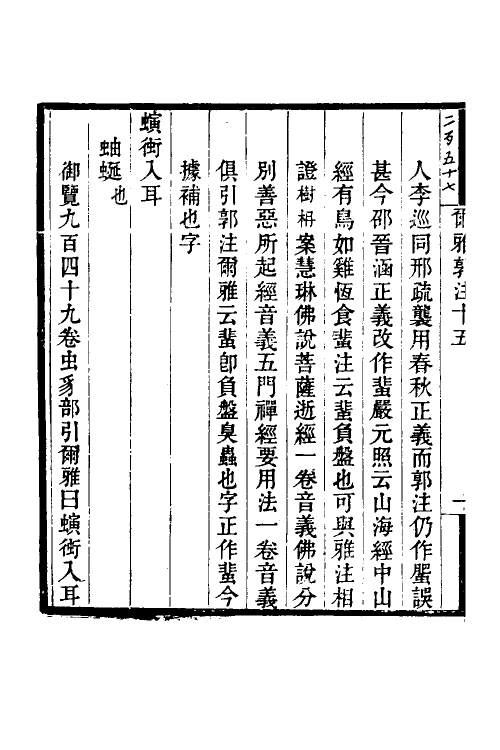 二百五十七
爾雅郭注十五
一
人李巡同邢疏襲用春秋正義而郭注仍作蜰誤
甚今邵晉涵正義改作蜚嚴元照云山海經中山
經有鳥如雞恆食蜚注云蜚負盤也可與雅注相
證樹枏案慧琳佛說菩薩逝經一卷音義佛說分
別善惡所起經音義五門禪經要用法一卷音義
俱引郭注爾雅云蜚卽負盤臭蟲也字正作蜚今
據補也字
螾衝入耳
蚰蜒也
御覽九百四十九卷虫豸部引爾雅曰螾衝入耳